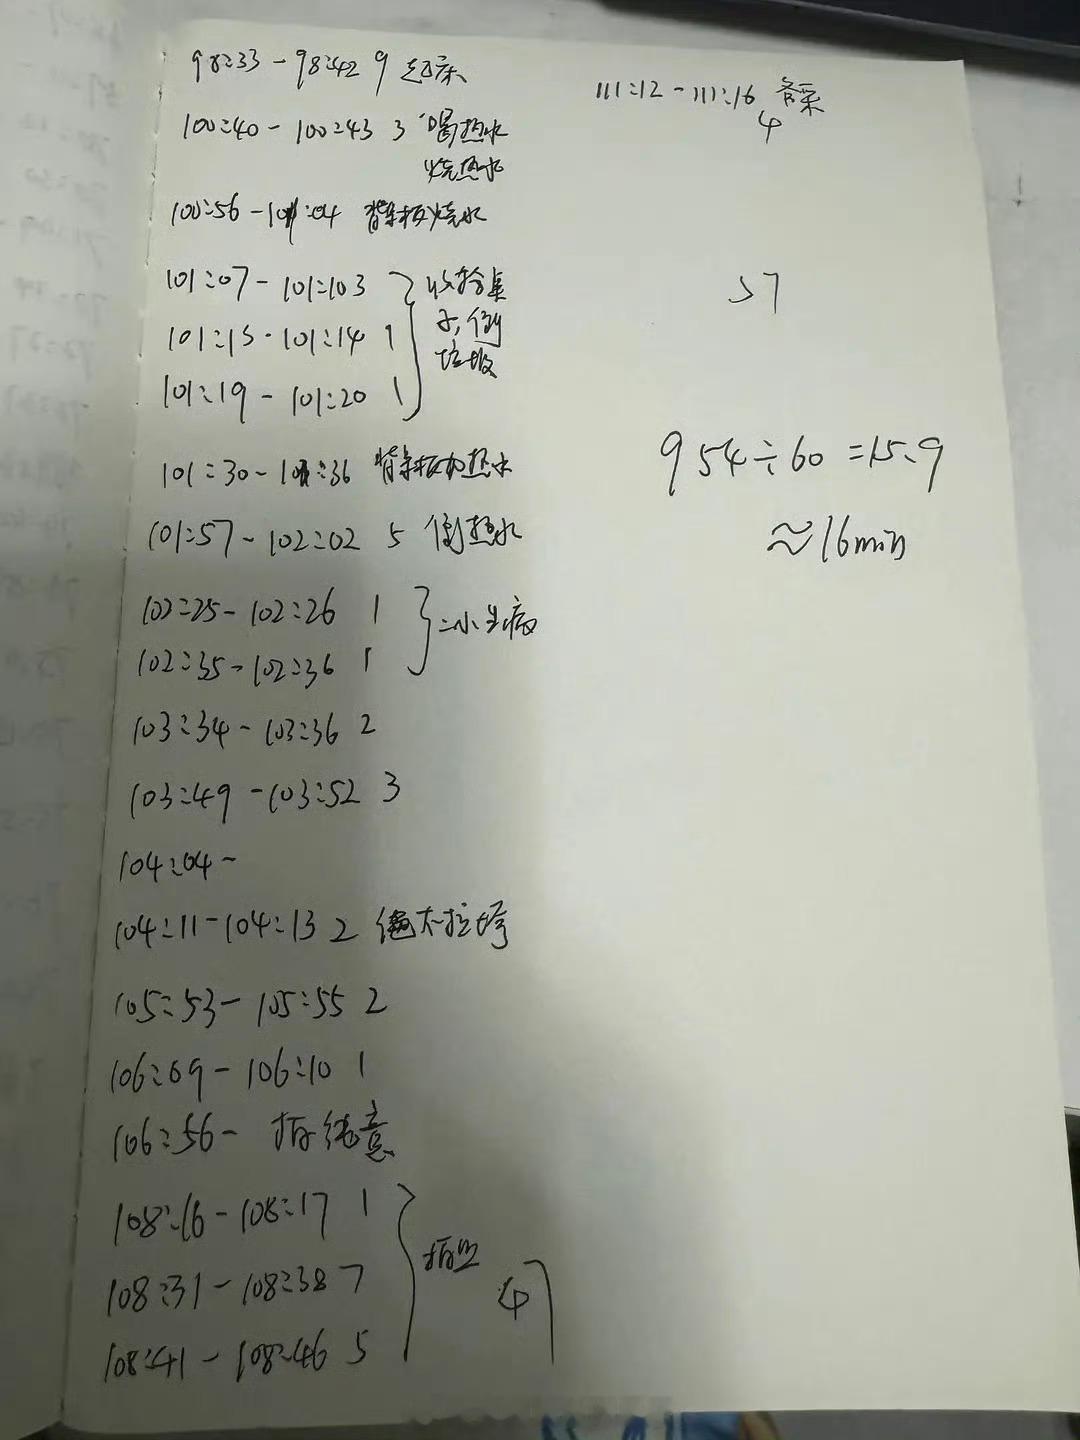 98:33-98:42 9 起床
100:40-100:43 3 喝热水
烧热水
100:56-101:04 背柴板烧水
101:07-101:103 收拾桌
101:13-101:14 1 子,倒
垃圾
101:19-101:20 1
101:30-101:36 背柴板加热水
101:57-102:02 5 倒热水
102:25-102:26 1
二小生病
102:35-102:36 1
103:34-103:36 2
103:49-103:52 3
104:04-
104:11-104:13 2 太拉垮
105:53-105:55 2
106:09-106:10 1
106:56- 拍纯意
108:16-108:17 1
108:31-108:38 7
108:41-108:46 5
47
111:12-111:16 备菜
4
57
954÷60=15.9
≈16min